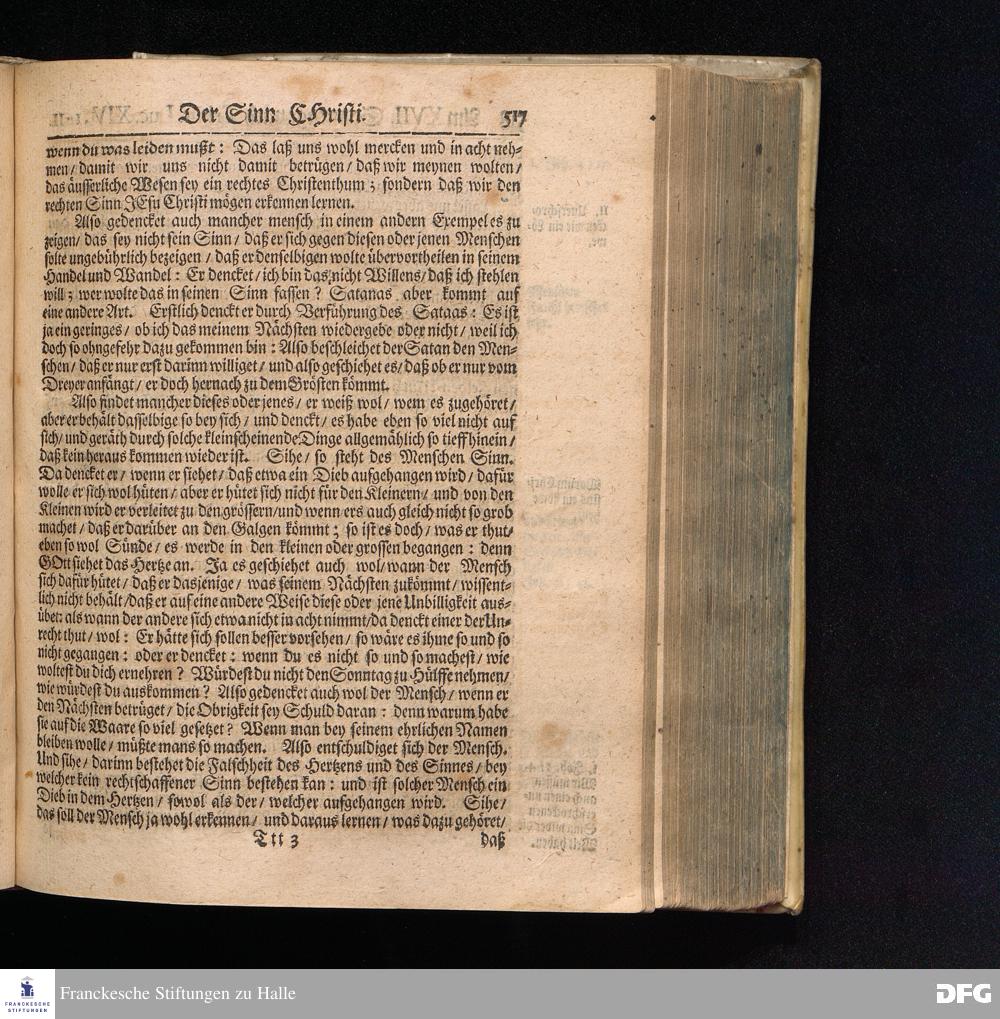 Der Sinn CHristi. 517
wenn du was leiden mußt: Das laß uns wohl mercken und in acht neh-
men/ damit wir uns nicht damit betrügen/ daß wir meynen wolten/
das äusserliche Wesen sey ein rechtes Christenthum; sondern daß wir den
rechten Sinn JEsu Christi mögen erkennen lernen.
Also gedencket auch mancher mensch in einem andern Exempel es zu
zeigen/ das sey nicht sein Sinn/ daß er sich gegen diesen oder jenen Menschen
solte ungebührlich bezeigen/ daß er denselbigen wolte übervortheilen in seinem
Handel und Wandel: Er dencket/ ich bin das nicht Willens/ daß ich stehlen
will; wer wolte das in seinen Sinn fassen? Satanas aber kommt auf
eine andere Art. Erstlich denckt er durch Verführung des Sataas: Es ist
ja ein geringes/ ob ich das meinem Nächsten wiedergebe oder nicht/ weil ich
doch so ohngefehr dazu gekommen bin: Also beschleichet der Satan den Men-
schen/ daß er nur erst darinn williget/ und also geschiehet es/ daß ob er nur vom
Dreyer anfängt/ er doch hernach zu dem Grösten kömmt.
Also findet mancher dieses oder jenes/ er weiß wol/ wem es zugehöret/
aber er behält dasselbige so bey sich/ und denckt/ es habe eben so viel nicht auf
sich/ und geräth durch solche kleinscheinende Dinge allgemählich so tieff hinein/
daß kein heraus kommen wieder ist. Sihe/ so steht des Menschen Sinn.
Da dencket er/ wenn er siehet/ daß etwa ein Dieb aufgehangen wird/ dafür
wolle er sich wol hüten/ aber er hütet sich nicht für den Kleinern/ und von den
Kleinen wird er verleitet zu den grössern/ und wenn ers auch gleich nicht so grob
machet/ daß er darüber an den Galgen kömmt; so ist es doch/ was er thut/
eben so wol Sünde/ es werde in den kleinen oder grossen begangen: denn
GOtt siehet das Hertze an. Ja es geschiehet auch wol/ wann der Mensch
sich dafür hütet/ daß er dasjenige/ was seinem Nächsten zukömmt/ wissent-
lich nicht behält/ daß er auf eine andere Weise diese oder jene Unbilligkeit aus-
übet: als wann der andere sich etwa nicht in acht nimmt/ da denckt einer der Un-
recht thut/ wol: Er hätte sich sollen besser vorsehen/ so wäre es ihme so und so
nicht gegangen: oder er dencket: wenn du es nicht so und so machest/ wie
woltest du dich ernehren? Würdest du nicht den Sonntag zu Hülffe nehmen/
wie würdest du auskommen? Also gedencket auch wol der Mensch/ wenn er
den Nächsten betrüget/ die Obrigkeit sey Schuld daran: denn warum habe
sie auf die Waare so viel gesetzet? Wenn man bey seinem ehrlichen Namen
bleiben wolle/ müßte mans so machen. Also entschuldiget sich der Mensch.
Und sihe/ darinn bestehet die Falschheit des Hertzens und des Sinnes/ bey
welcher kein rechtschaffener Sinn bestehen kan: und ist solcher Mensch ein
Dieb in dem Hertzen/ sowol als der/ welcher aufgehangen wird. Sihe/
das soll der Mensch ja wohl erkennen/ und daraus lernen/ was dazu gehöret/
Ttt 3 daß
FRANCKESCHE
STIFTUNGEN
Franckesche Stiftungen zu Halle
DFG